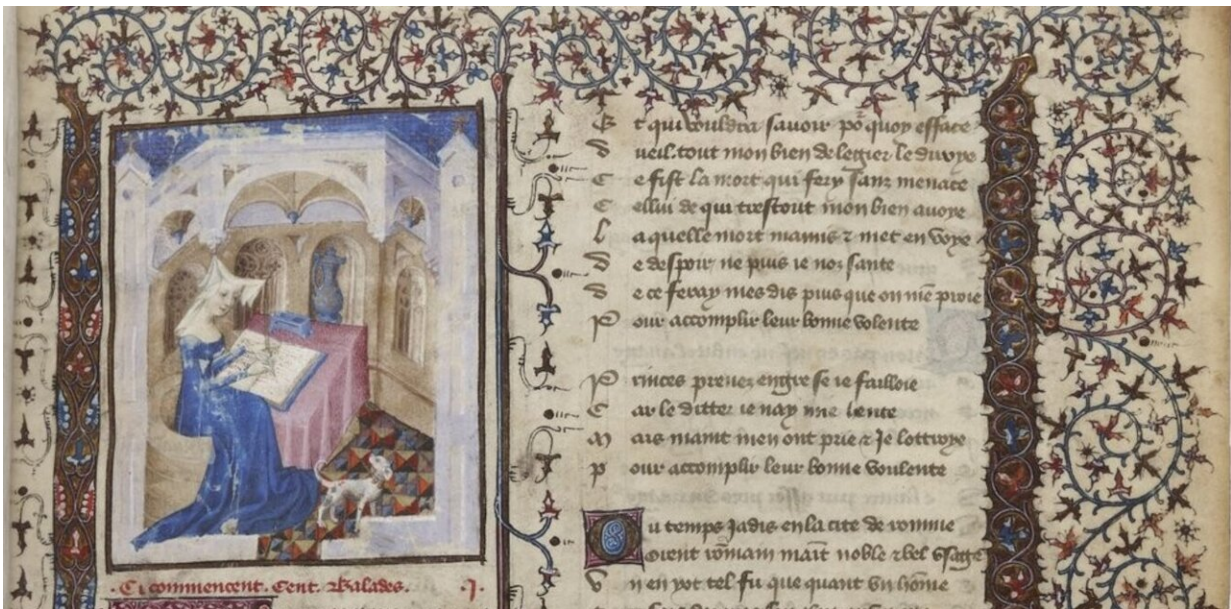 .Ci commencent. Cent. Balades. .J.
Et qui vouldra savoir por quoy efface
Dueil. tout mon bien de legier le diroye
Ce fist la mort qui fery sanz menace
Cellui de qui trestout mon bien avoye
Laquelle mort mamis ⁊ met en voye
De despoir ne puis ie noz sante
De ce feray mes dis puis que on mē proie
Pour accomplir leur bonne volente
Princes prenez engre se ie failloie
Car le ditter ie nay mie hente
Mais maint men ont prie ⁊ Je lottroye
Pour accomplir leur bonne voulente
Ou temps Jadis en la cite de romme
Orent rōmain maīt noble ⁊ bel usage
Vn en yot tel fu que quant un hōme